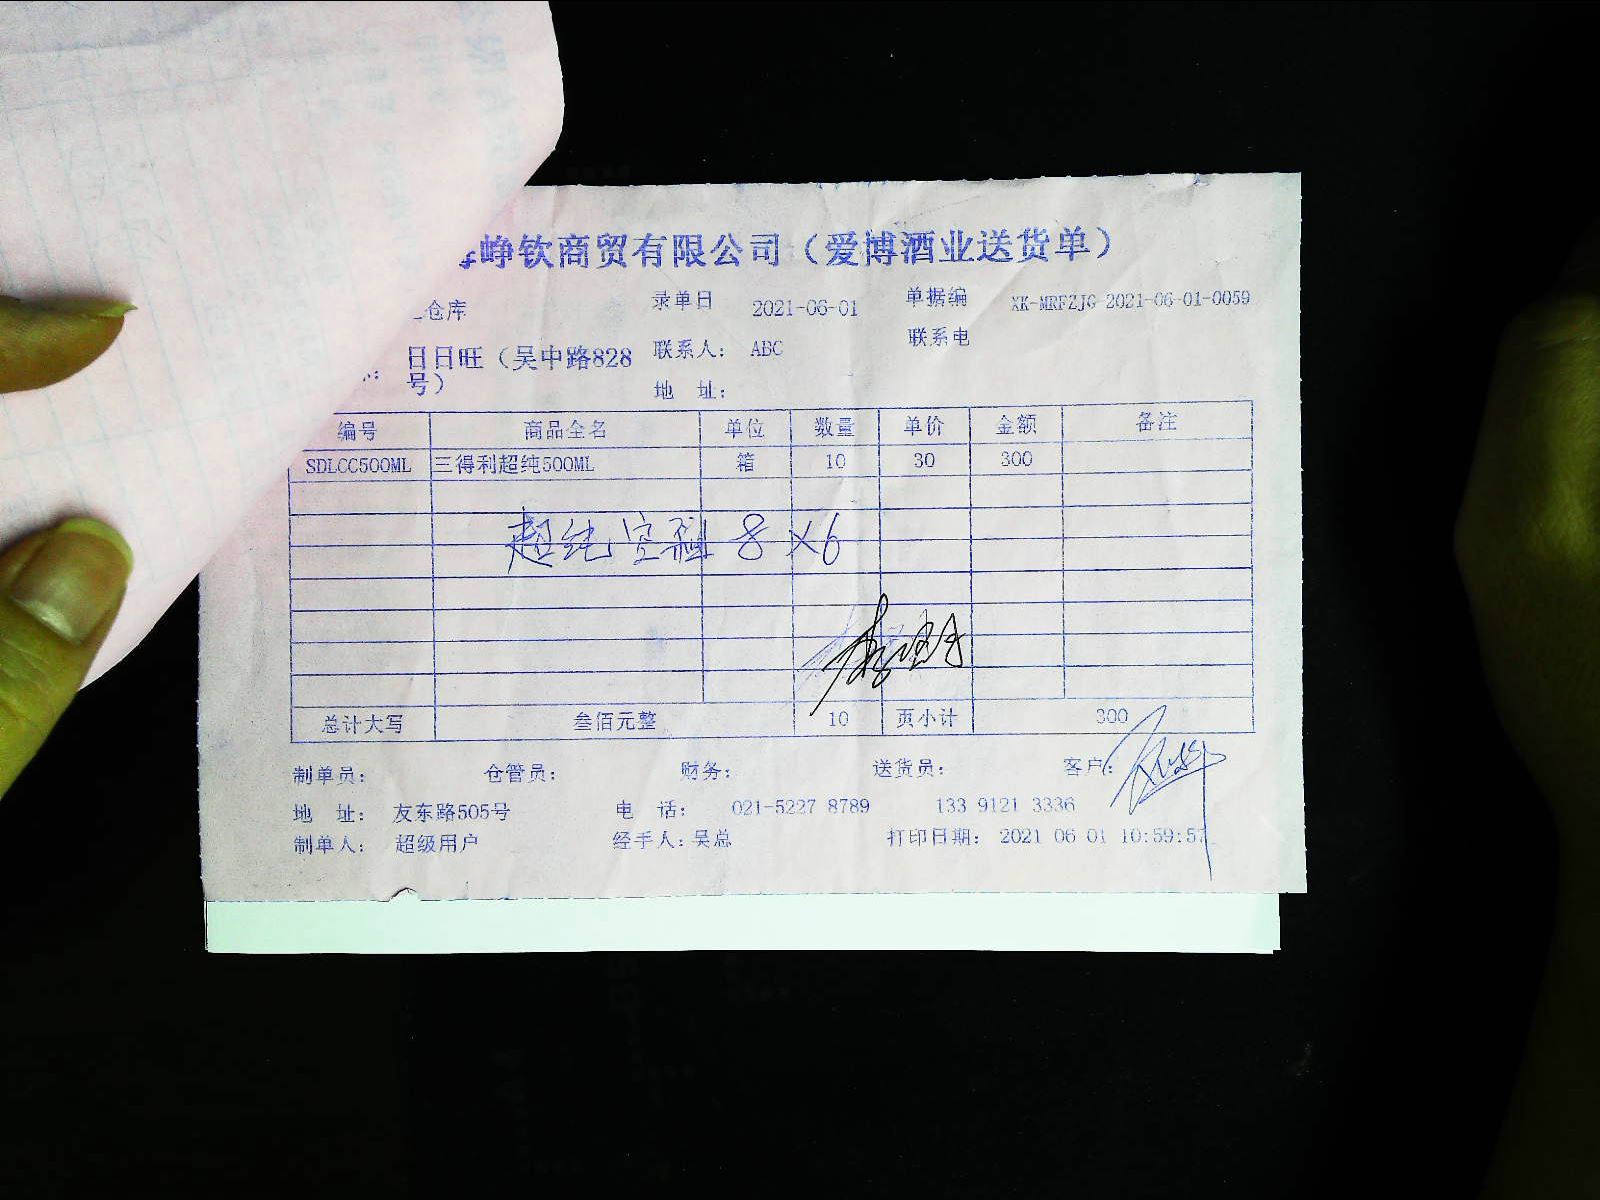 峥钦商贸有限公司（爱博酒业送货单）
仓库 录单日 2021-06-01 单据编 XK-MRFZJG-2021-06-01-0059
日日旺（吴中路828号） 联系人： ABC 联系电
地 址：
编号 商品全名 单位 数量 单价 金额 备注
SDLCC500ML 三得利超纯500ML 箱 10 30 300
超纯空瓶 8×6
总计大写 叁佰元整 10 页小计 300
制单员： 仓管员： 财务： 送货员： 客户：
地 址： 友东路505号 电 话： 021-5227 8789 133 9121 3336
制单人： 超级用户 经手人：吴总 打印日期： 2021 06 01 10:59:57